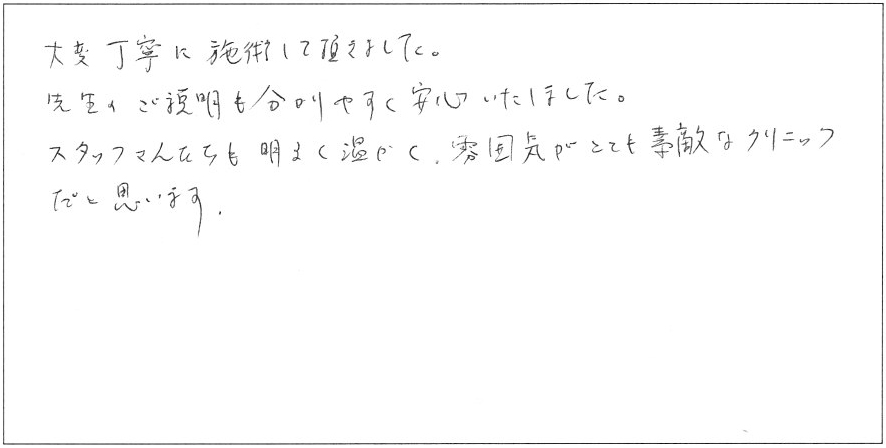 大変丁寧に施術して頂きました。
先生のご説明も分かりやすく安心いたしました。
スタッフさんたちも明るく温かく、雰囲気がとても素敵なクリニック
だと思います。